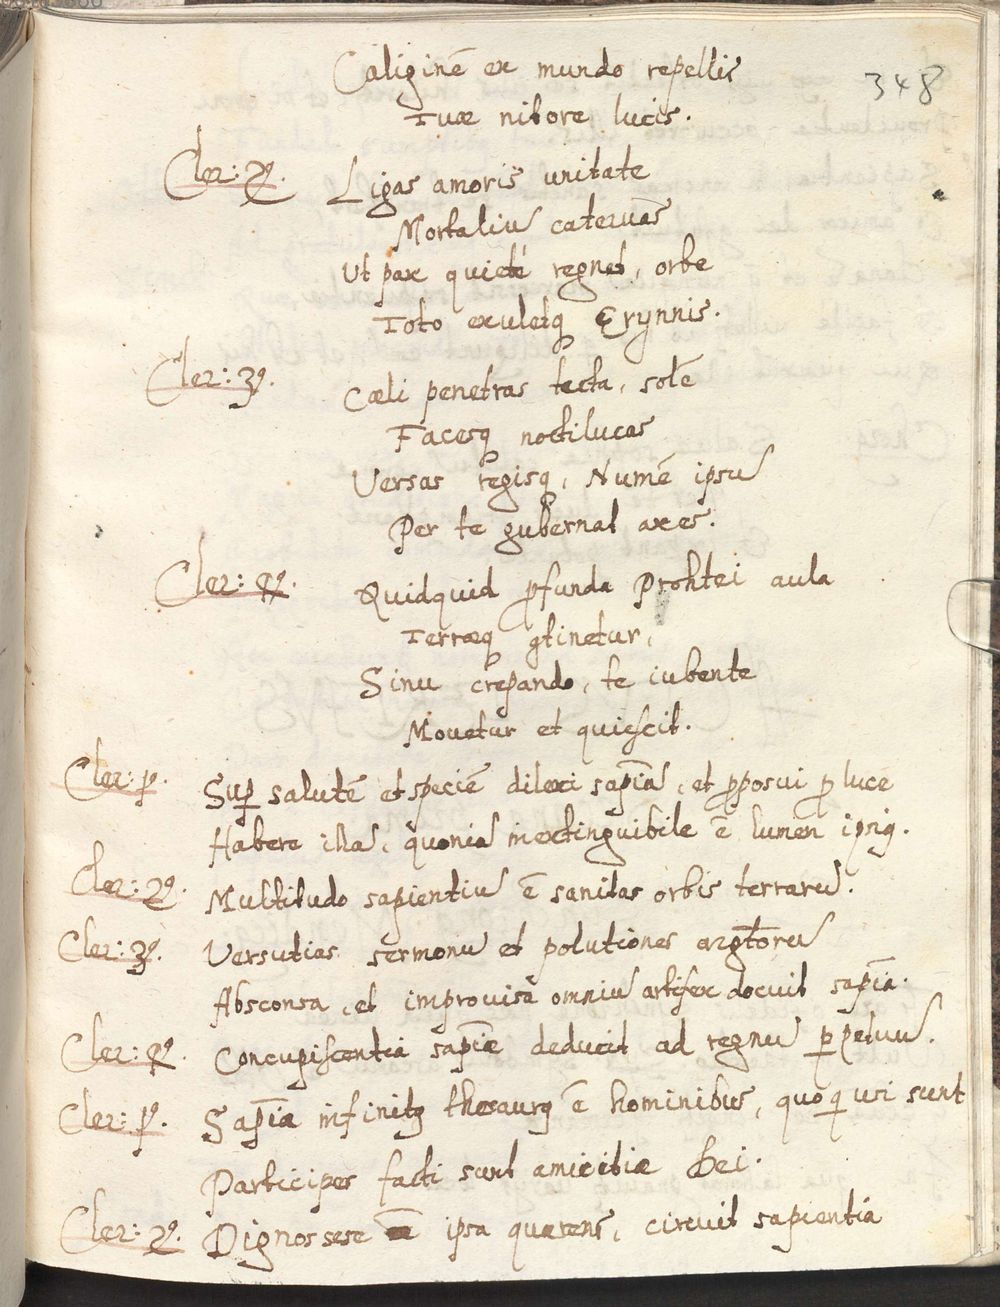 Caliginē ex mundo repellis
348
Tuæ nitore lucis.
Cler: 2⁹. Ligas amoris unitate
Mortaliū catervas
Ut pax quietē regnet, orbe
Toto exuletq Erynnis.
Cler: 3⁹. Cæli penetras tecta, solē
Facesq noctilucas
Versas regisq, Numē ipsū
Per te gubernat axes.
Cler: 4⁹. Quidquid pfunda Prohtei aula
Terræq gtinetur,
Sinu crepando, te iubente
Movetur et quiescit.
Cler: p⁹. Sup salutē et speciē dilexi sapīa, et pposui p luce
Habere illā, quoniā inextinguibile ē lumen ipsig.
Cler: 2⁹. Multitudo sapientiū ē sanitas orbis terrarū.
Cler: 3⁹. Versutias sermonū et polutiones argtorū
Absconsa, et improvisa omniū artifex docuit sapīa.
Cler: 4⁹. Concupiscentia sapīæ deducit ad regnū ppetuū.
Cler: p⁹. Sapīa infinitg thesaurg ē hominibus, quo q usi sunt
Participes facti sunt amicitiæ Dei.
Cler: 2⁹. Dignos sese ipsa quærens, circuit sapientia